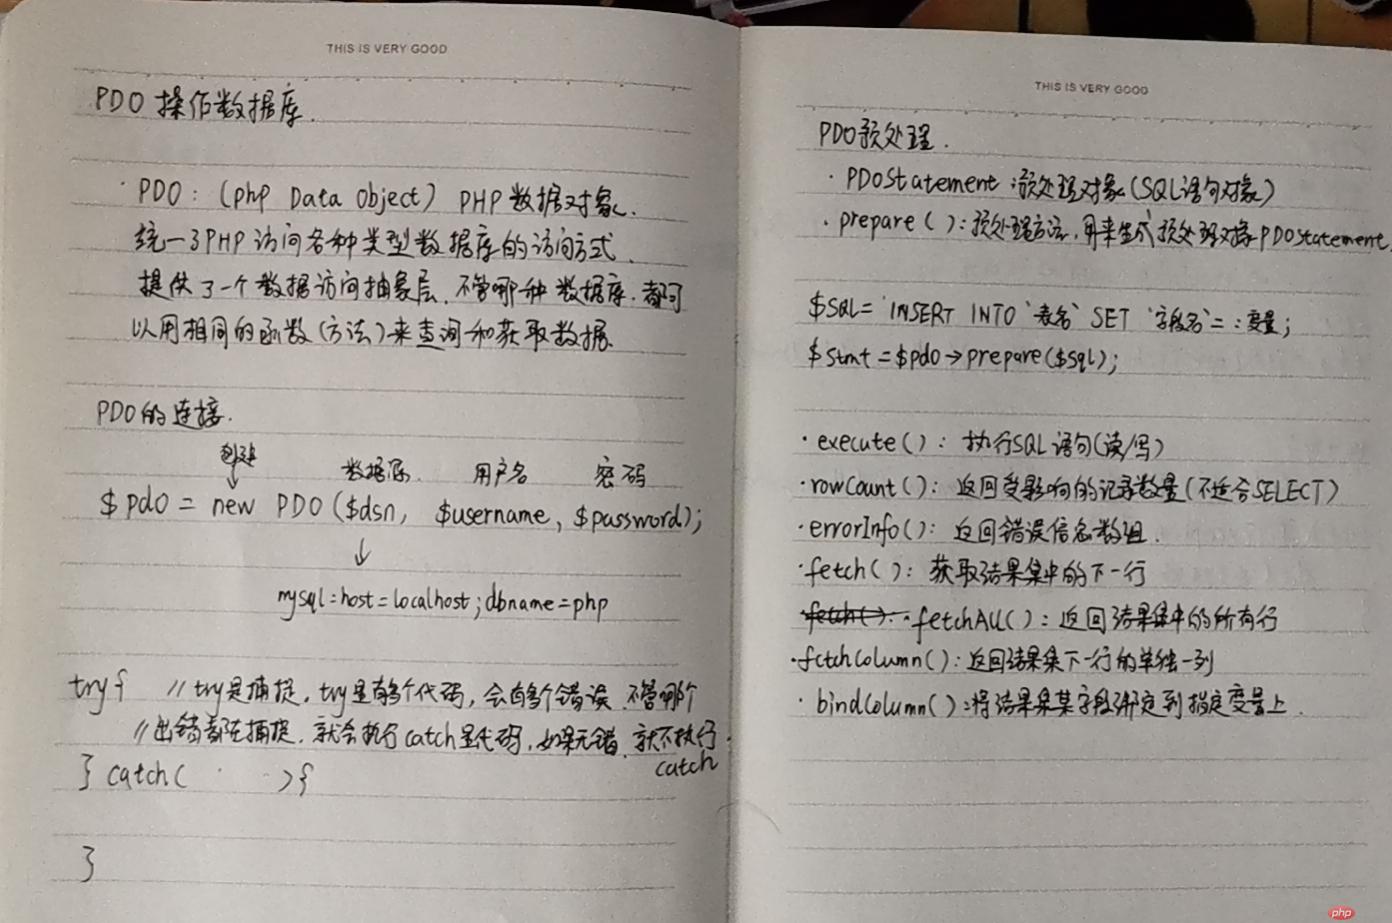 THIS IS VERY GOOD
PDO 操作数据库.
· PDO: (php Data Object) PHP 数据对象.
统一了PHP 访问各种类型数据库的访问方式.
提供了一个数据访问抽象层, 不管哪种数据库, 都可
以用相同的函数(方法)来查询和获取数据.
PDO的连接.
创建
数据源. 用户名 密码
$pdo = new PDO ($dsn, $username, $password);
↓
mysql:host=localhost;dbname=php
try{ // try是捕捉, try里有多个代码, 会有多个错误 不管哪个
// 出错都在捕捉, 就会执行catch里代码, 如果无错, 就不执行.
catch
} catch( ){
}
THIS IS VERY GOOD
PDO预处理.
· PDOStatement :预处理对象(SQL语句对象)
· prepare( ):预处理方法, 用来生成预处理对象PDOStatement
$SQL= 'INSERT INTO `表名` SET `字段名`= :变量;
$stmt = $pdo→prepare($sql);
· execute(): 执行SQL语句(读/写)
· rowCount(): 返回受影响的记录数量(不适合SELECT)
· errorInfo(): 返回错误信息数组.
· fetch(): 获取结果集中的下一行
fetch(): · fetchAll(): 返回结果集中的所有行
· fetchColumn(): 返回结果集下一行的单独一列
· bindColumn():将结果集某字段绑定到指定变量上.
php